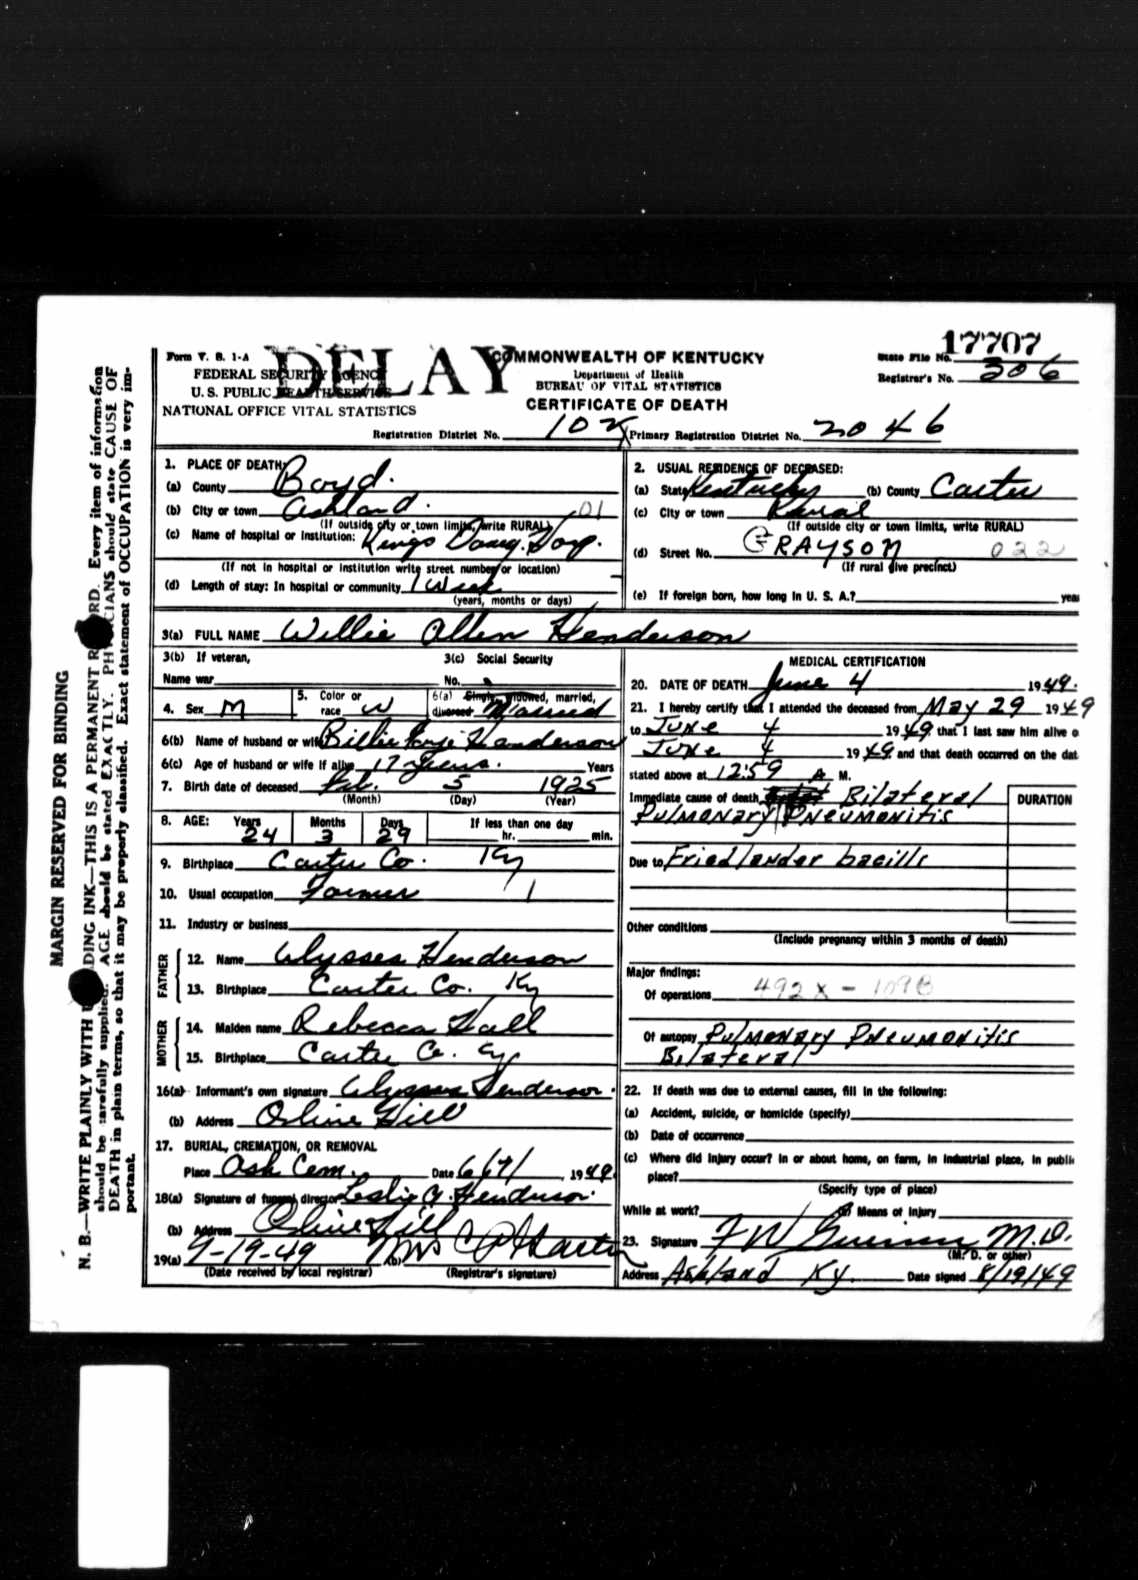 17707
Form V. S. 1-A
DELAY
COMMONWEALTH OF KENTUCKY
State File No.
FEDERAL SECURITY AGENCY
Department of Health
Registrar's No. 306
U. S. PUBLIC HEALTH SERVICE
BUREAU OF VITAL STATISTICS
NATIONAL OFFICE VITAL STATISTICS
CERTIFICATE OF DEATH
Registration District No. 102 Primary Registration District No. 2046
MARGIN RESERVED FOR BINDING
N. B.—WRITE PLAINLY WITH UNFADING INK—THIS IS A PERMANENT RECORD. Every item of information
should be carefully supplied. AGE should be stated EXACTLY. PHYSICIANS should state CAUSE OF
DEATH in plain terms, so that it may be properly classified. Exact statement of OCCUPATION is very im-
portant.
1. PLACE OF DEATH:
(a) County Boyd.
(b) City or town Ashland. 01
(If outside city or town limits, write RURAL)
(c) Name of hospital or institution: Kings Daug. Hosp.
(If not in hospital or institution write street number or location)
(d) Length of stay: In hospital or community 1 Week
(years, months or days)
2. USUAL RESIDENCE OF DECEASED:
(a) State Kentucky (b) County Carter
(c) City or town Rural
(If outside city or town limits, write RURAL)
(d) Street No. GRAYSON 022
(If rural give precinct)
(e) If foreign born, how long in U. S. A.? years
3(a) FULL NAME Willie Allen Henderson
3(b) If veteran,
Name war
3(c) Social Security
No.
4. Sex M
5. Color or
race W
6(a) Single, widowed, married,
divorced Married
6(b) Name of husband or wife Billie Faye Henderson
6(c) Age of husband or wife if alive 17 Years. Years
7. Birth date of deceased Feb. 5 1925
(Month) (Day) (Year)
8. AGE: Years 24 Months 3 Days 29 If less than one day
hr. min.
9. Birthplace Carter Co. Ky
10. Usual occupation Farmer 1
11. Industry or business
FATHER
12. Name Ulysses Henderson
13. Birthplace Carter Co. Ky
MOTHER
14. Maiden name Rebecca Hall
15. Birthplace Carter Co. Ky
16(a) Informant's own signature Ulysses Henderson.
(b) Address Oline Hill
17. BURIAL, CREMATION, OR REMOVAL
Place Ash Cem. Date 6/7/, 1949.
18(a) Signature of funeral director Leslie G. Henderson.
(b) Address Olive Hill
19(a) 9-19-49 (b)
(Date received by local registrar) (Registrar's signature)
MEDICAL CERTIFICATION
20. DATE OF DEATH June 4 1949.
21. I hereby certify that I attended the deceased from May 29 1949
to June 4 1949 that I last saw him alive o
June 4 1949 and that death occurred on the dat
stated above at 12:59 A M.
Immediate cause of death Bilateral
Pulmonary Pneumonitis
DURATION
Due to Friedlander bacills
Other conditions
(Include pregnancy within 3 months of death)
Major findings:
Of operations 492X - 109B
Of autopsy Pulmonary Pneumonitis
Bilateral
22. If death was due to external causes, fill in the following:
(a) Accident, suicide, or homicide (specify)
(b) Date of occurrence
(c) Where did injury occur? In or about home, on farm, in industrial place, in public
place?
(Specify type of place)
While at work? (d) Means of Injury
23. Signature F W M.D.
(M. D. or other)
Address Ashland Ky. Date signed 8/19/49